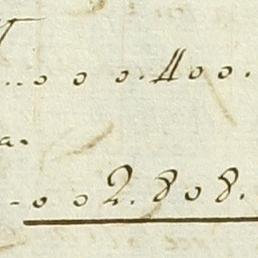 ..o o o.400.
a.
-o o2.808.